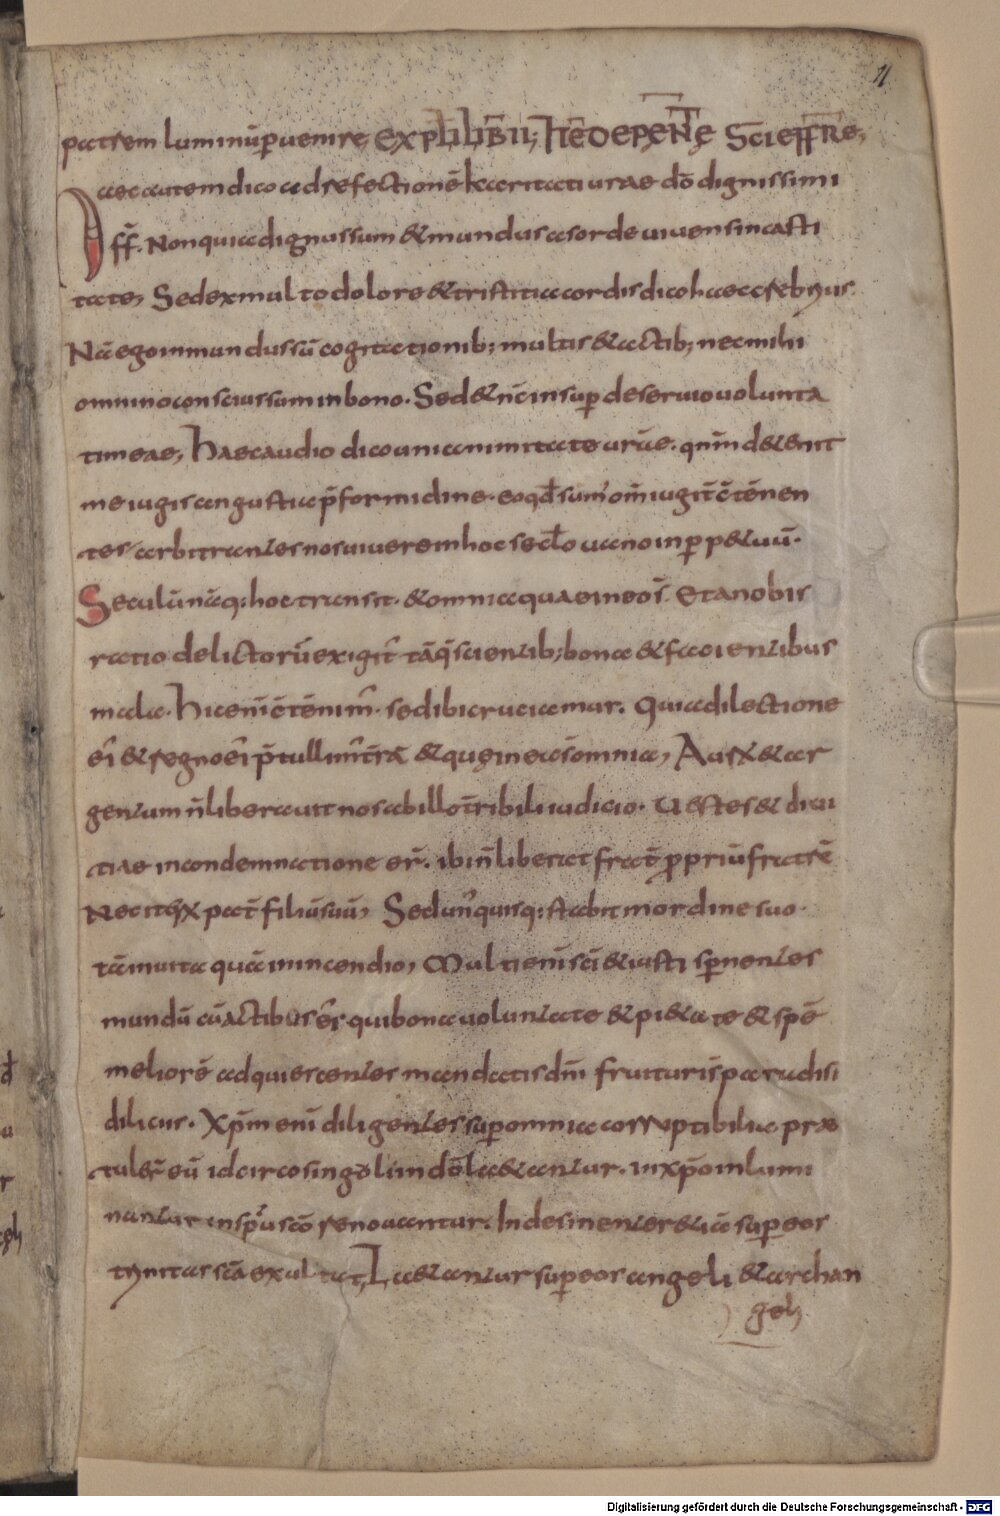 11
patrem luminū ꝑuenire, EXPL LIBII; ITĒ DE PĘNTĘ SCI EFFRE;
aec autem dico ad refectionē karitati urae dō dignissimi
ff̄. Non quia dignus sum & mundus a sorde uiuens in casti
tate, Sed ex multo dolore & tristitia cordis dico haec crebrius.
Nā ego inmundus sū cogitationib; multis & actib; nec mihi
omnino conscius sum in bono. Sed & nc̄ insuꝑ deseruio volunta
ti meae, Haec audio dico unianimitate urāe. qnm̄ d&enit
me iugis angustia p̄ formidine. eo qd̄ sum' om̄i iugit̄ c̄tēnen
tes arbitrantes nos uiuere in hoc sēclo uano in ꝑp&uū.
Seculū nāq; hoc transit. & omnia quae in eo s̄. Et a nobis
ratio delictorū exigit̄ tāq̄ scientib; bona & facientibus
mala. Hic eni c̄tēnim̄. sed ibi cruciamur. Quia dilectione
ei' & regno ei' p̄tullim' t̄rā & quę in ea s̄ omnia, Aurū & ar
gentum n̄ liberauit nos ab illo t̄ribili iudicio. Uestes & diui
tiae in condemnatione er̄. ibi n̄ liberat frat̄ propriū fratrē
Nec itē pat̄ filiū suū, Sed un'quisq; stabit in ordine suo.
tā in uita quā in incendio, Multi eni sc̄i & iusti sꝑnentes
mundū cū actib; s' er̄ qui bona uoluntate & pi&ate & spē
meliorē adquiescentes mandatis dn̄i fruituri s̄ paradisi
dilicias. Xp̄m eni diligentes suꝑ omnia corruptibilia prae
tuler̄ eū idcirco singoli in dō la&antur. in xp̄o inlumi
nantur in spū scō renouantur. Indesinenter &iā suꝑ eos
trinitas scā exultat, La&antur suꝑ eos angeli & archan
geli
Digitalisierung gefördert durch die Deutsche Forschungsgemeinschaft - DFG